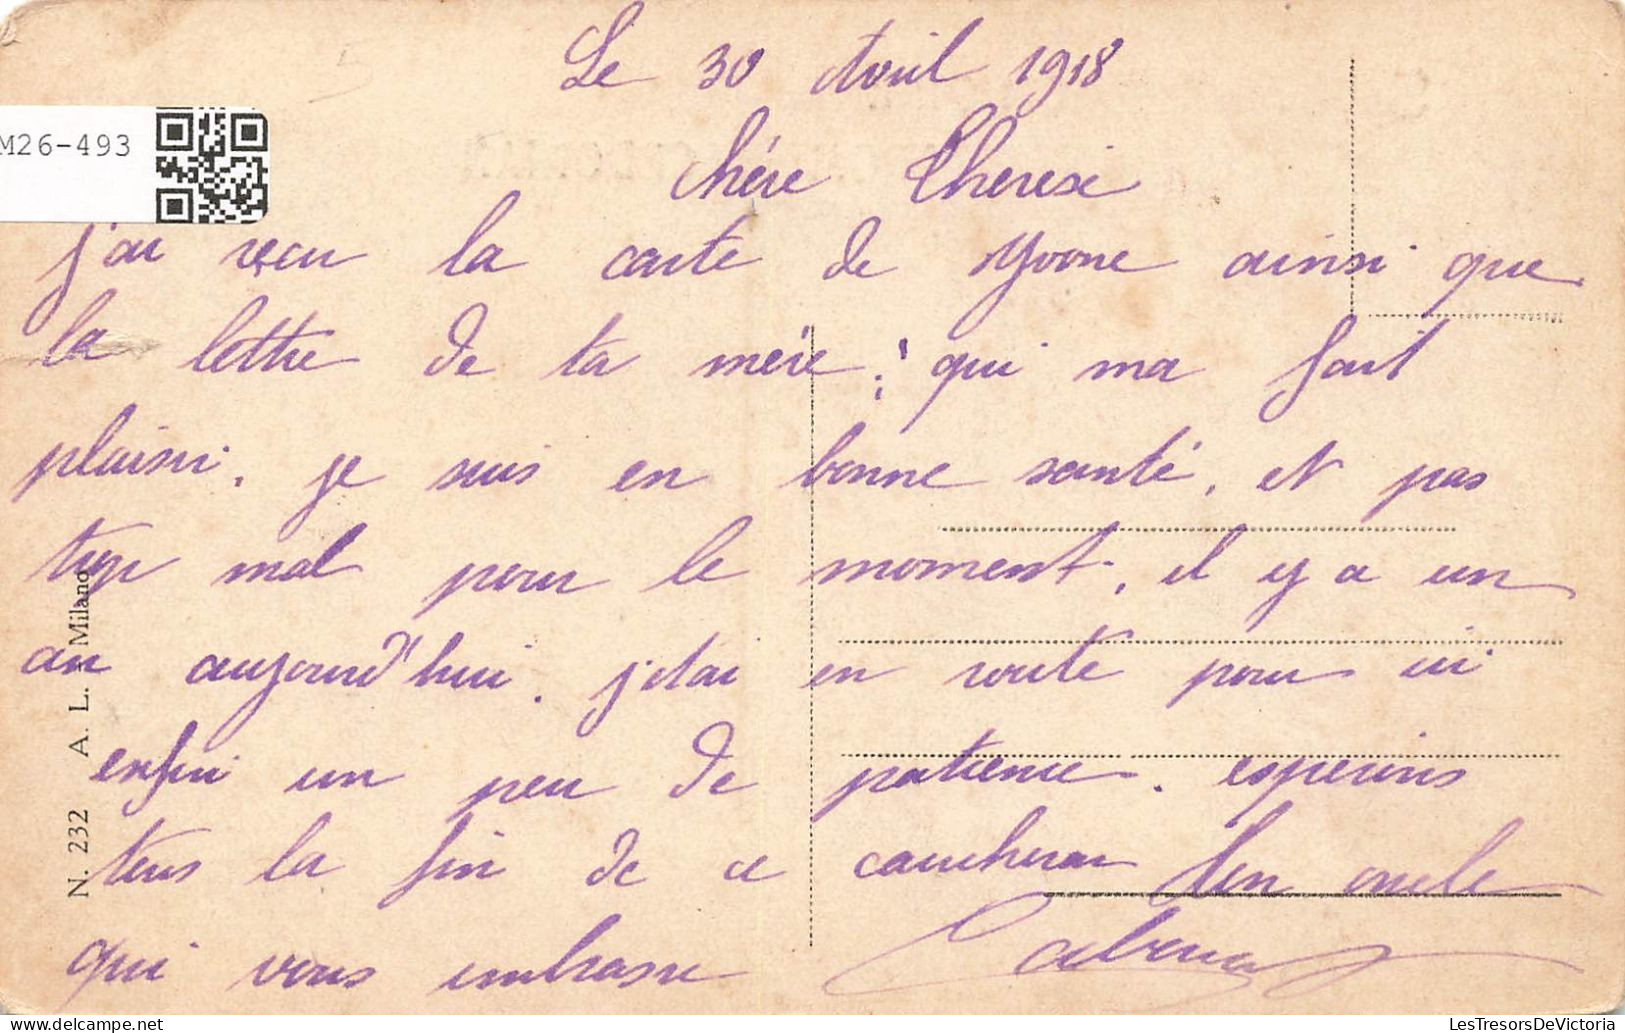 Le 30 Avril 1918
Chère Therese
j'ai recu la carte de Yvone ainsi que
la lettre de ta mère, qui ma fait
plaisir. je suis en bonne santé, et pas
trop mal pour le moment, il y a un
an aujourd'hui. j'etai en route pour ici
enfin un peu de patience. esperons
tous la fin de ce cauchemar Ton oncle
qui vous embrasse
N. 232 A. L. Milano
M26-493
LesTresorsDeVictoria